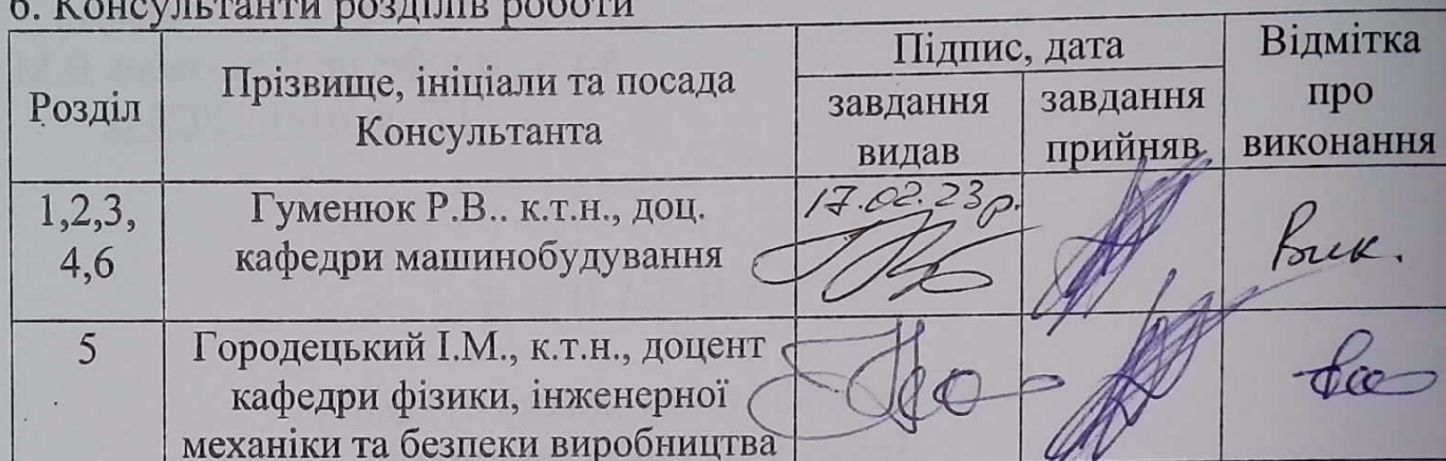 6. Консультанти розділів роботи
Розділ
Прізвище, ініціали та посада
Консультанта
Підпис, дата
завдання
видав
завдання
прийняв
Відмітка
про
виконання
1,2,3,
4,6
Гуменюк Р.В.. к.т.н., доц.
кафедри машинобудування
17.02.23р.
Вик.
5
Городецький І.М., к.т.н., доцент
кафедри фізики, інженерної
механіки та безпеки виробництва